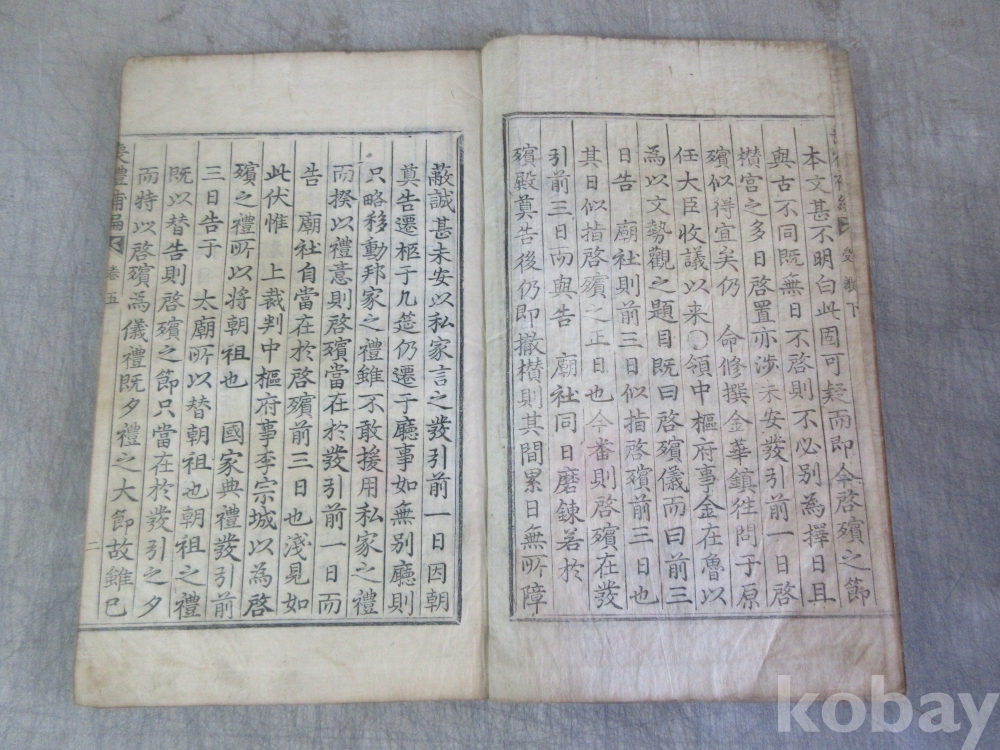 本文甚不明白此固可疑而即今啓殯之節
與古不同既無日不啓則不必別為擇日且
欑宮之多日啓置亦涉未安發引前一日啓
殯似得宜矣仍 命修撰金華鎭徃問于原
任大臣收議以来〇領中樞府事金在魯以
為以文勢觀之題目既曰啓殯儀而曰前三
日告 廟社則前三日似指啓殯前三日也
其日似指啓殯之正日也今番則啓殯在發
引前三日而與告 廟社同日磨鍊若於
殯殿奠告後仍即撤欑則其間累日無所障
蔽誠甚未安以私家言之發引前一日因朝
奠告遷柩于九筵仍遷于廳事如無別廳則
只略移動邦家之禮雖不敢援用私家之禮
而揆以禮意則啓殯當在於發引前一日而
告 廟社自當在於啓殯前三日也淺見如
此伏惟 上裁判中樞府事李宗城以為啓
殯之禮所以将朝祖也 國家典禮發引前
三日告于 太廟所以替朝祖也朝祖之禮
既以替告則啓殯之節只當在於發引之夕
而特以啓殯為儀禮既夕禮之大節故雖已
喪禮補編 卷五 二
kobay